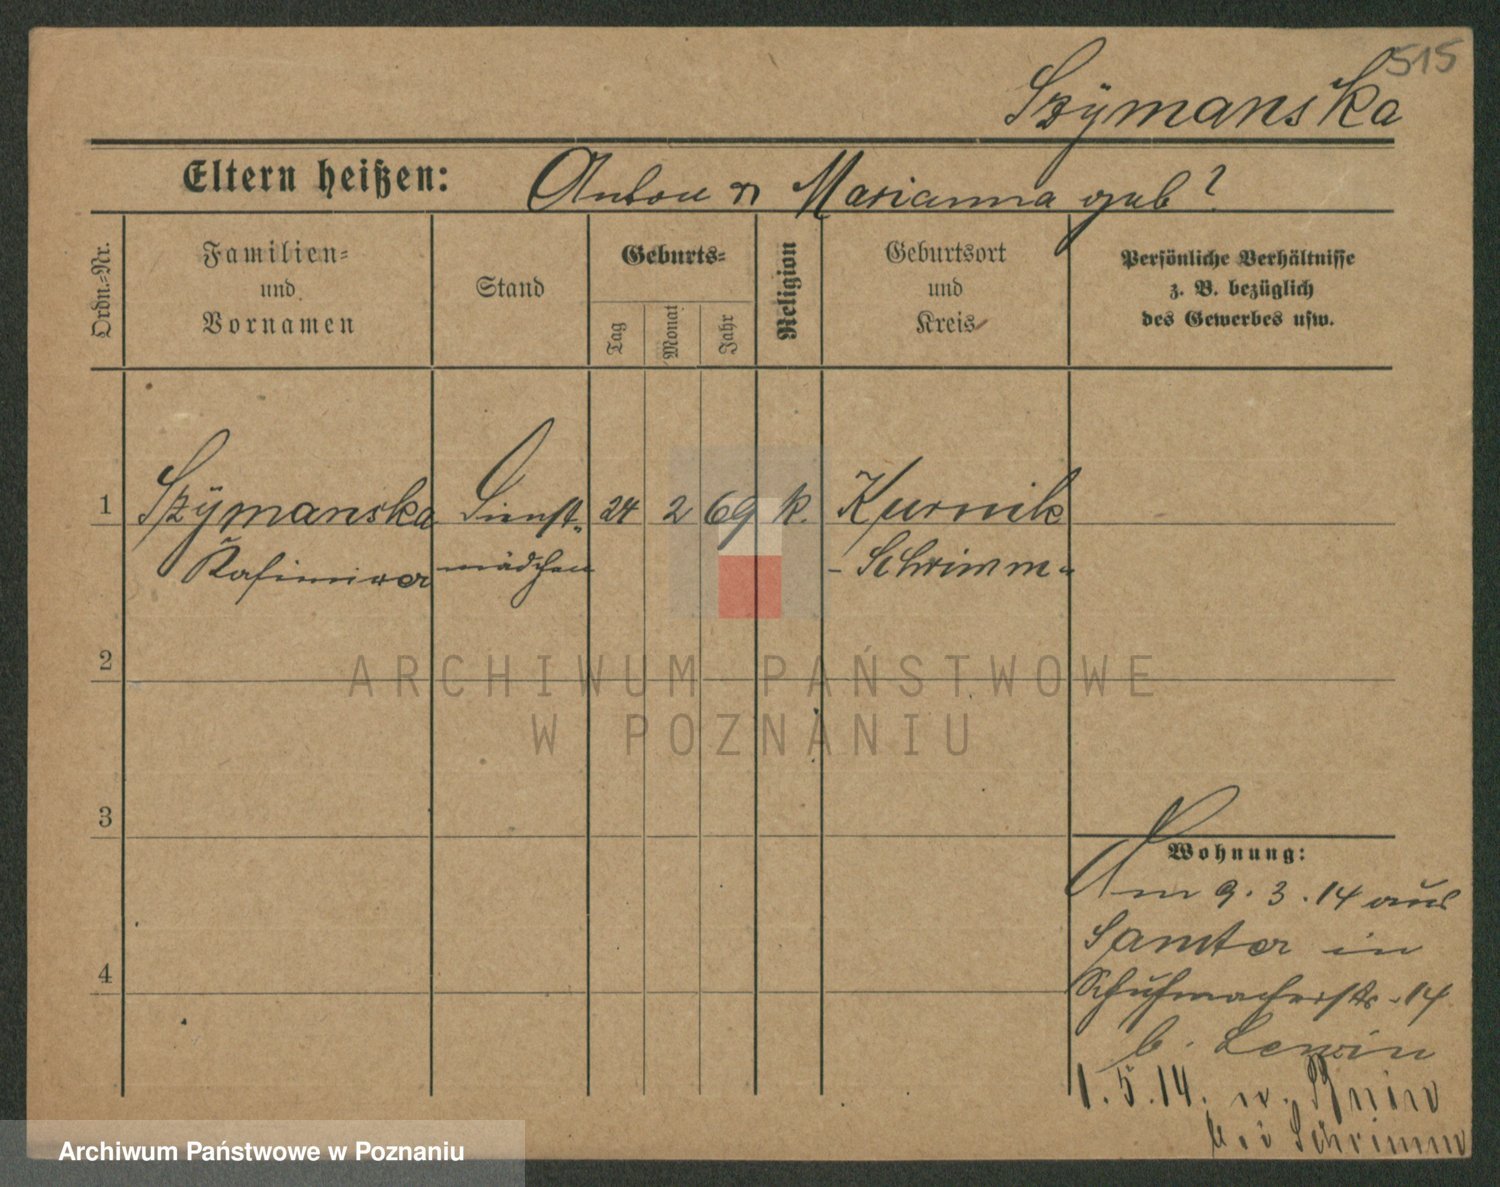 515
Szymanska
Eltern heißen: Anton u Marianna geb ?
Ordn.-Nr.
Familien-
und
Vornamen
Stand
Geburts-
Tag
Monat
Jahr
Religion
Geburtsort
und
Kreis
Persönliche Verhältnisse
z. B. bezüglich
des Gewerbes usw.
1 Szymanska Dienst- 24 2 69 k. Kurnik
Kasimira mädchen - Schrimm -
2
3
4
Wohnung:
Am 9.3.14 aus
Samter in
Schuhmacherstr. 14
b. Lewin
1.5.14. n.
bei Schrimm
ARCHIWUM PAŃSTWOWE
W POZNANIU
Archiwum Państwowe w Poznaniu